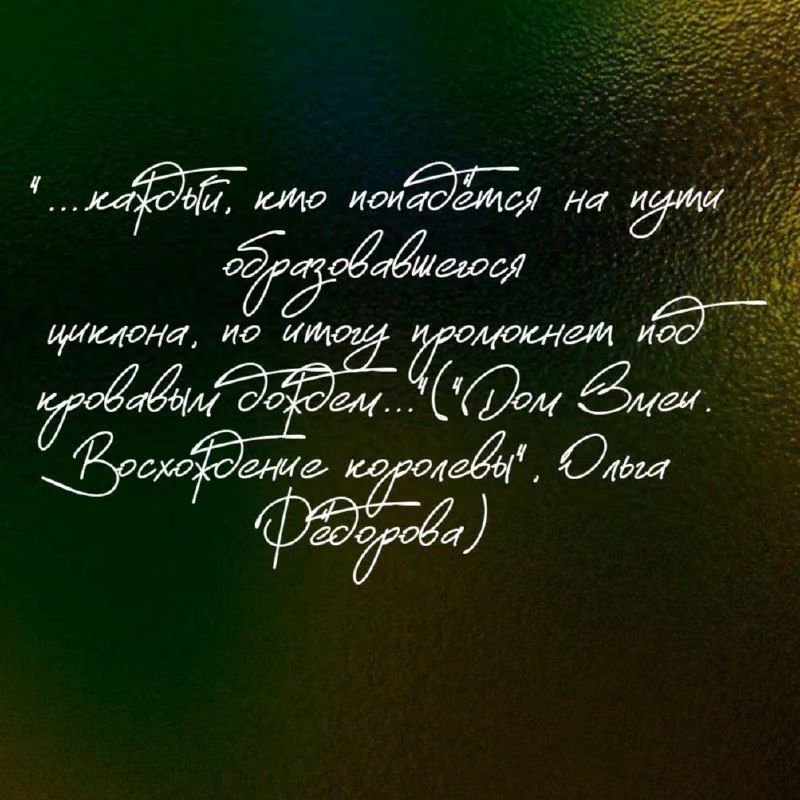 "....каждый, кто попадётся на пути
образовавшегося
циклона, по итогу промокнет под
кровавым дождем..."("Дом Змеи.
Восхождение королевы", Ольга
Фёдорова)